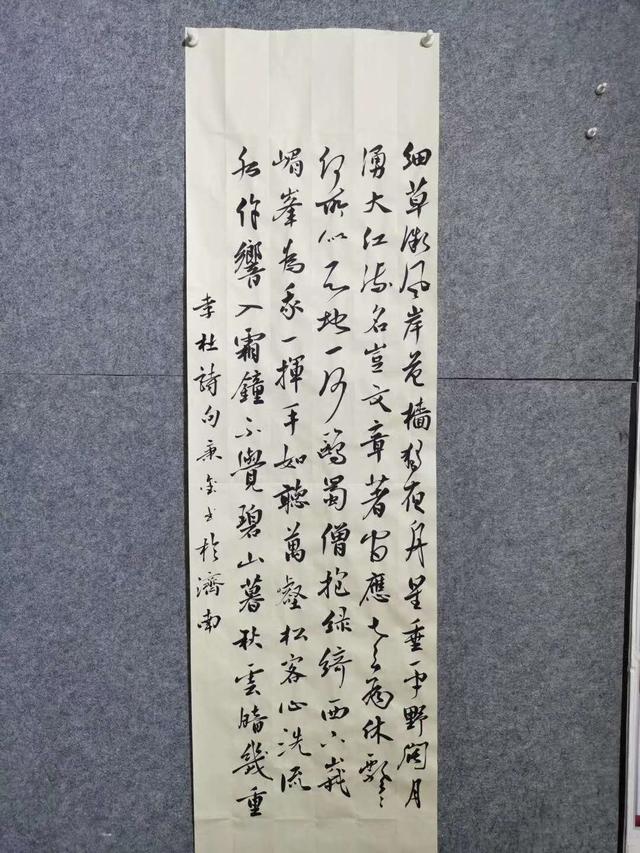 細草微风岸危檣独夜舟星垂平野阔月
湧大江流名豈文章著官應老病休飄飄
何所似天地一沙鷗蜀僧抱绿綺西下峨
嵋峯為我一揮手如聽萬壑松客心洗流
水餘響入霜鐘不覺碧山暮秋雲暗幾重
李杜詩句秉金书於濟南